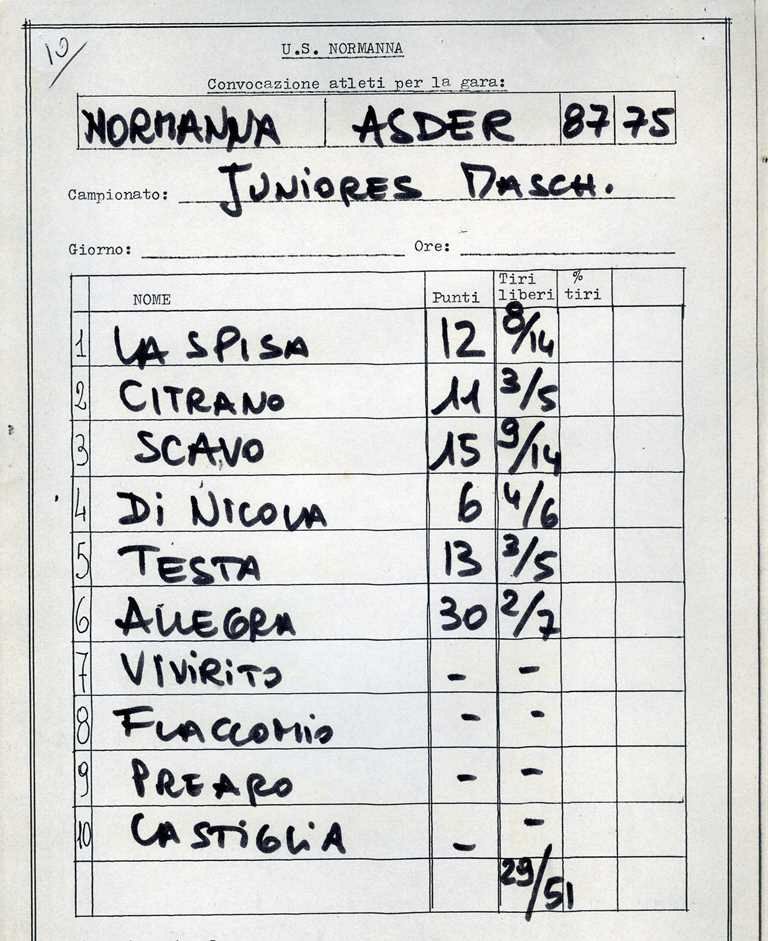 10/
U.S. NORMANNA
Convocazione atleti per la gara:
NORMANNA ASDER 87 75
Campionato: JUNIORES MASCH.
Giorno: Ore:
NOME Punti Tiri liberi % tiri
1 LA SPISA 12 8/14
2 CITRANO 11 3/5
3 SCAVO 15 9/14
4 Di NICOLA 6 4/6
5 TESTA 13 3/5
6 ALLEGRA 30 2/7
7 VIVIRITO - -
8 FLACCOMIO - -
9 PREARO - -
10 CASTIGLIA - -
29/51